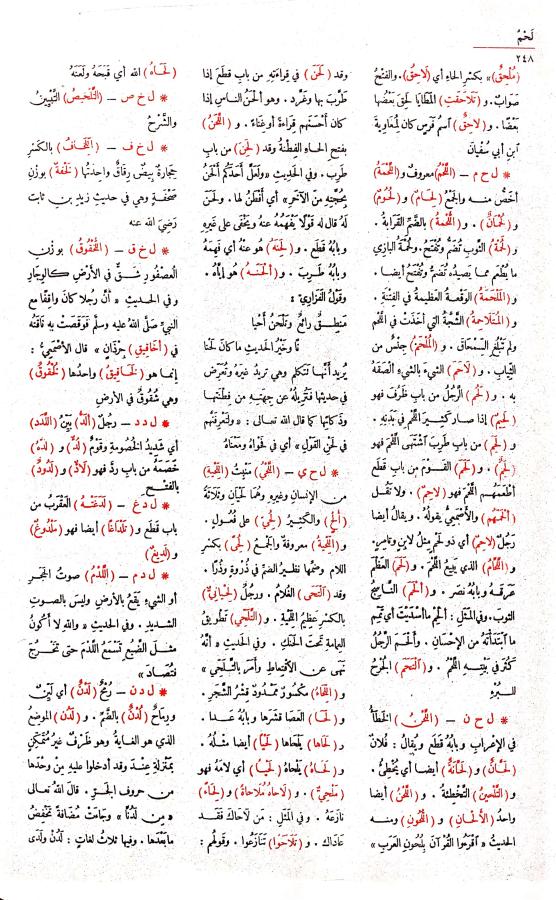 لَحْمٌ
٢٤٨
(مُلْحِقٌ)» بكسرِ الحاءِ أي (لَاحِقٌ). والفتحُ
صَوابٌ. و(تَلَاحَقَتِ) المَطَايَا لَحِقَ بَعْضُهَا
بَعْضًا. و(لَاحِقٌ) اسمُ فَرَسٍ كان لمُعاوِيةَ
ابنِ أبي سُفْيانَ
* ل ح م – (اللَّحْمُ) معروفٌ و(اللَّحْمَةُ)
أخَصُّ منه والجَمْعُ (لِحَامٌ) و(لُحُومٌ)
و(لُحْمَانٌ). و(اللُّحْمَةُ) بالضَّمِّ القَرَابةُ.
و(لُحْمَةُ) الثَّوْبِ تُضَمُّ وتُفْتَحُ. ولُحْمَةُ البَازِي
ما يُطْعَم مما يَصِيدُه تُضَمُّ وتُفْتَحُ أيضا.
و(المَلْحَمَةُ) الوَقْعَةُ العَظِيمةُ في الفِتْنَةِ.
و(المُتَلَاحِمَةُ) الشَّجَّةُ التي أخَذَتْ في اللَّحْمِ
ولم تَبْلُغِ السِّمْحَاقَ. و(المُلْحَمُ) جِنْسٌ من
الثِّيَابِ. و(لَاحَمَ) الشَّيءَ بالشَّيءِ ألْصَقَهُ
به. و(لَحُمَ) الرَّجُلُ من بابِ ظَرُفَ فهو
(لَحِيمٌ) إذا صار كَثِيرَ اللَّحْمِ في بَدَنِه.
و(لَحِمَ) من بابِ طَرِبَ اشْتَهَى اللَّحْمَ فهو
(لَحِمٌ). و(لَحَمَ) القَوْمَ من بابِ قَطَعَ
أطْعَمَهُم اللَّحْمَ فهو (لَاحِمٌ). ولا تَقُلْ
(أَلْحَمَهُم) والأصْمَعِيُّ يقولُهُ. ويقالُ أيضا
رَجُلٌ (لَاحِمٌ) أي ذو لَحْمٍ مِثْلُ لَابِنٍ وتَامِرٍ.
و(اللَّحَّامُ) الذي يَبِيعُ اللَّحْمَ. و(لَحَمَ) العَظْمَ
عَرَقَهُ وبابُهُ نَصَرَ. و(أَلْحَمَ) النَّاسِجُ
الثوبَ. وفي المثَلِ: أَلْحِمْ ما أسْدَيْتَ أي تَمِّمْ
ما ابْتَدَأْتَهُ من الإحسانِ. وأَلْحَمَ الرَّجُلُ
كَثُرَ في بَيْتِهِ اللَّحْمُ. و(الْتَحَمَ) الجُرْحُ
للبُرْءِ
* ل ح ن – (اللَّحْنُ) الخَطَأُ
في الإعْرابِ وبابُهُ قَطَعَ ويُقَالُ: فُلانٌ
(لَحَّانٌ) و(لَحَّانَةٌ) أيضا أي يُخْطِئُ.
و(التَّلْحِينُ) التَّخْطِئَةُ. و(اللَّحْنُ) أيضا
واحدُ (الأَلْحَانِ) و(اللُّحُونِ) ومنه
الحديثُ «اقْرَءُوا القُرْآنَ بِلُحُونِ العَرَبِ»
وقد (لَحَنَ) في قِرَاءَتِهِ من بابِ قَطَعَ إذا
طَرَّبَ بها وغَرَّدَ. وهو ألْحَنُ الناسِ إذا
كان أحْسَنَهم قِرَاءَةً أو غِنَاءً. و(اللَّحَنُ)
بفتح الحاءِ الفِطْنَةُ وقد (لَحِنَ) من بابِ
طَرِبَ. وفي الحَدِيثِ «ولَعَلَّ أَحَدَكُمْ أَلْحَنُ
بِحُجَّتِهِ مِنَ الآخَرِ» أي أفْطَنُ لها. ولَحَنَ
لَهُ قال له قَوْلًا يَفْهَمُهُ عنهُ ويَخْفَى على غَيْرِهِ
وبابُهُ قَطَعَ. و(لَحِنَهُ) هو عَنْهُ أي فَهِمَهُ
وبابُهُ طَرِبَ. و(أَلْحَنَهُ) هو إيَّاهُ.
وقَوْلُ الفَزَارِيِّ:
مَنطِقٌ رائِعٌ وتَلْحَنُ أحْيا
نًا وخَيْرُ الحَدِيثِ ما كان لَحْنا
يُرِيد أنَّها تَتكلَّم وهي تريد غيرَهُ وتُعَرِّضُ
في حديثها فتُزِيلُهُ عن جِهَتِهِ من فِطْنَتِها
وذَكَائِها كما قال الله تعالى: «ولَتَعْرِفَنَّهُمْ
في لَحْنِ القَوْلِ» أي في فَحْواهُ ومَعْناهُ
* ل ح ي – (اللَّحْيُ) مَنْبِتُ (اللِّحْيَةِ)
من الإنسانِ وغيرِهِ وهُمَا لَحْيَانِ وثَلَاثَةُ
(أَلْحٍ) والكَثِيرُ (لُحِيٌّ) على فُعُولٍ.
و(اللِّحْيَةُ) معروفةٌ والجَمْعُ (لِحًى) بكسرِ
اللام وضَمِّها نظيرُ الضمِّ في ذُرْوَةٍ وذُرًا.
وقد (الْتَحَى) الغُلامُ. ورَجُلٌ (لِحْيَانِيٌّ)
بالكسرِ عَظِيمُ اللِّحْيَةِ. و(التَّلَحِّي) تَطْوِيقُ
العِمَامةِ تحتَ الحَنَكِ. وفي الحَدِيثِ «أنَّهُ
نَهَى عن الاقْتِعاطِ وأَمَرَ بالتَّلَحِّي»
و(اللِّحَاءُ) مَكْسُورٌ مَمْدُودٌ قِشْرُ الشَّجَرِ.
و(لَحَا) العَصَا قَشَرَها وبابُهُ عَدا.
و(لَحَاهَا) يَلْحَاهَا (لَحْيًا) أيضا مِثْلُهُ.
و(لَحَاهُ) يَلْحَاهُ (لَحْيًا) أي لَامَهُ فهو
(مَلْحِيٌّ). و(لَاحَاهُ مُلَاحَاةً) و(لِحَاءً)
نَازَعَهُ. وفي المثَلِ: مَن لَاحَاكَ فَقَدْ
عَادَاكَ. و(تَلَاحَوْا) تَنَازَعُوا. وقَوْلُهُم:
(لَحَاهُ) الله أي قَبَحَهُ ولَعَنَهُ
* ل خ ص – (التَّلْخِيصُ) التَّبْيِينُ
والشَّرْحُ
* ل خ ف – (اللِّخَافُ) بالكَسْرِ
حِجارَةٌ بِيضٌ رِقَاقٌ واحِدَتُها (لَخْفَةٌ) بوَزْنِ
صَحْفَةٍ وهي في حَدِيثِ زيدِ بنِ ثابت
رَضِيَ الله عنه
* ل خ ق – (اللُّخْقُوقُ) بوزن
العُصْفُورِ شَقٌّ في الأرْضِ كالوِجَارِ
وفي الحديثِ «أنّ رجلا كان واقِفًا مع
النبيِّ صَلَّى الله عليه وسلَّم فوَقَصَتْ به نَاقَتُه
في (أَخَاقِيقِ) جِرْذَانٍ» قال الأصمَعِيُّ:
إنما هو (لَخَاقِيقُ) واحدُها (لُخْقُوقٌ)
وهي شُقُوقٌ في الأرضِ
* ل د د – رَجُلٌ (أَلَدُّ) بَيِّنُ (اللَّدَدِ)
أي شَدِيدُ الخُصُومَةِ وقَوْمٌ (لُدٌّ). و(لَدَّهُ)
خَصَمَهُ من بابِ ردَّ فهو (لَادٌّ) و(لَدُودٌ)
بالفتح
* ل د غ – (لَدَغَتْهُ) العَقْرَبُ من
باب قَطَعَ و(تَلْدَاغًا) أيضا فهو (مَلْدُوغٌ)
و(لَدِيغٌ)
* ل د م – (اللَّدْمُ) صوتُ الحَجَرِ
أو الشَّيءِ يَقَعُ بالأرضِ وليسَ بالصوتِ
الشديدِ. وفي الحديثِ «واللهِ لا أَكُونُ
مثلَ الضَّبُعِ تَسْمَعُ اللَّدْمَ حتى تَخْرُجَ
فتُصَادَ»
* ل د ن – رُمْحٌ (لَدْنٌ) أي لَيِّنٌ
ورِمَاحٌ (لُدْنٌ) بالضَّمِّ. و(لَدُنْ) الموضعُ
الذي هو الغايةُ وهو ظَرْفٌ غيرُ مُتَمَكِّنٍ
بمَنْزِلَةِ عِنْدَ وقد أدخلوا عليهِ مِنْ وحْدَها
من حروفِ الجَرِّ. قال اللهُ تعالى
«مِن لَدُنَّا» وجاءَتْ مُضَافَةً تَخْفِضُ
ما بَعْدَها. وفيها ثلاثُ لغاتٍ: لَدُنْ ولَدَى